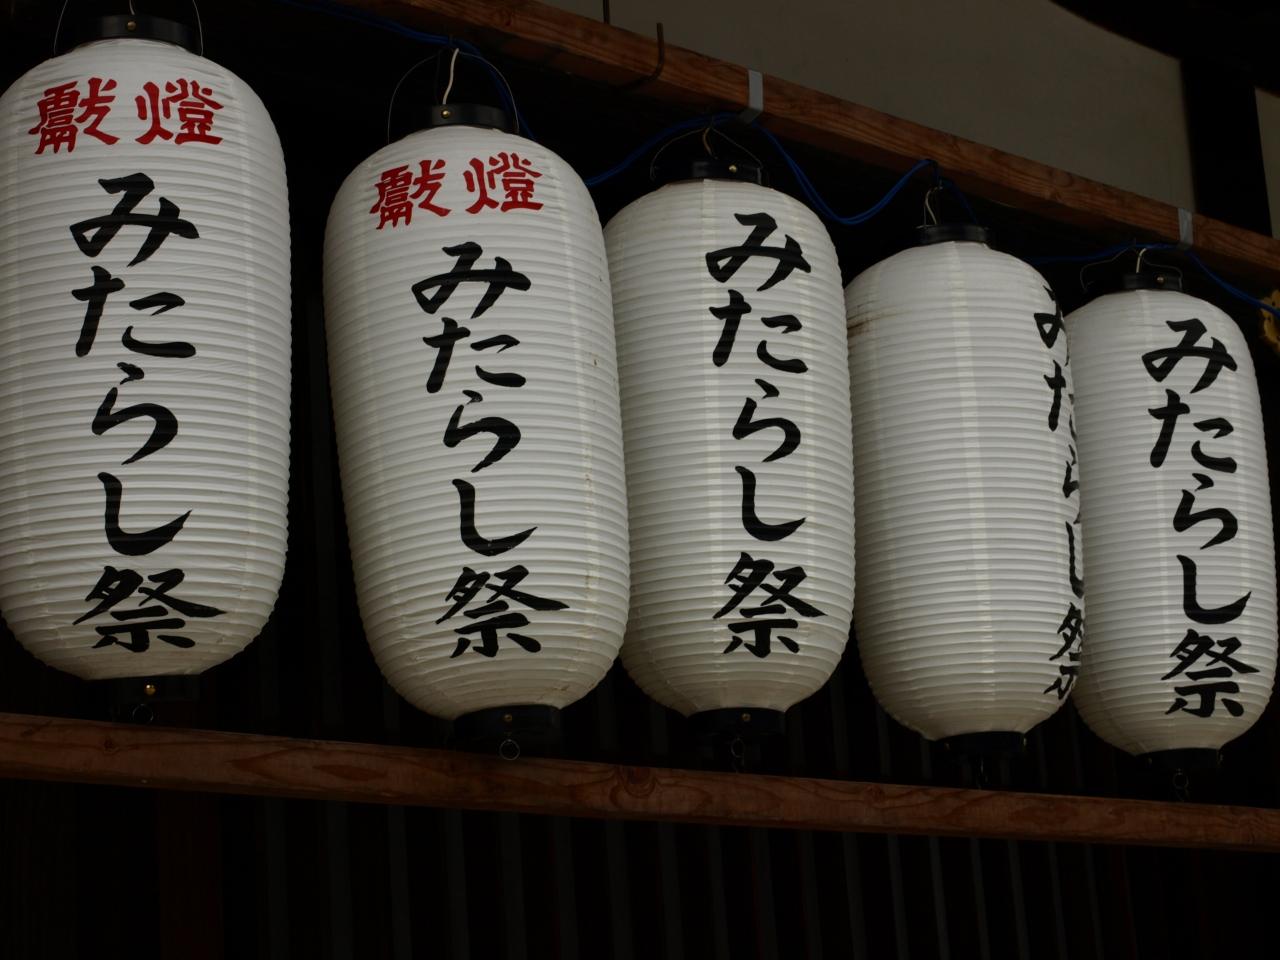 獻燈
みたらし祭
獻燈
みたらし祭
みたらし祭
みたらし祭
みたらし祭